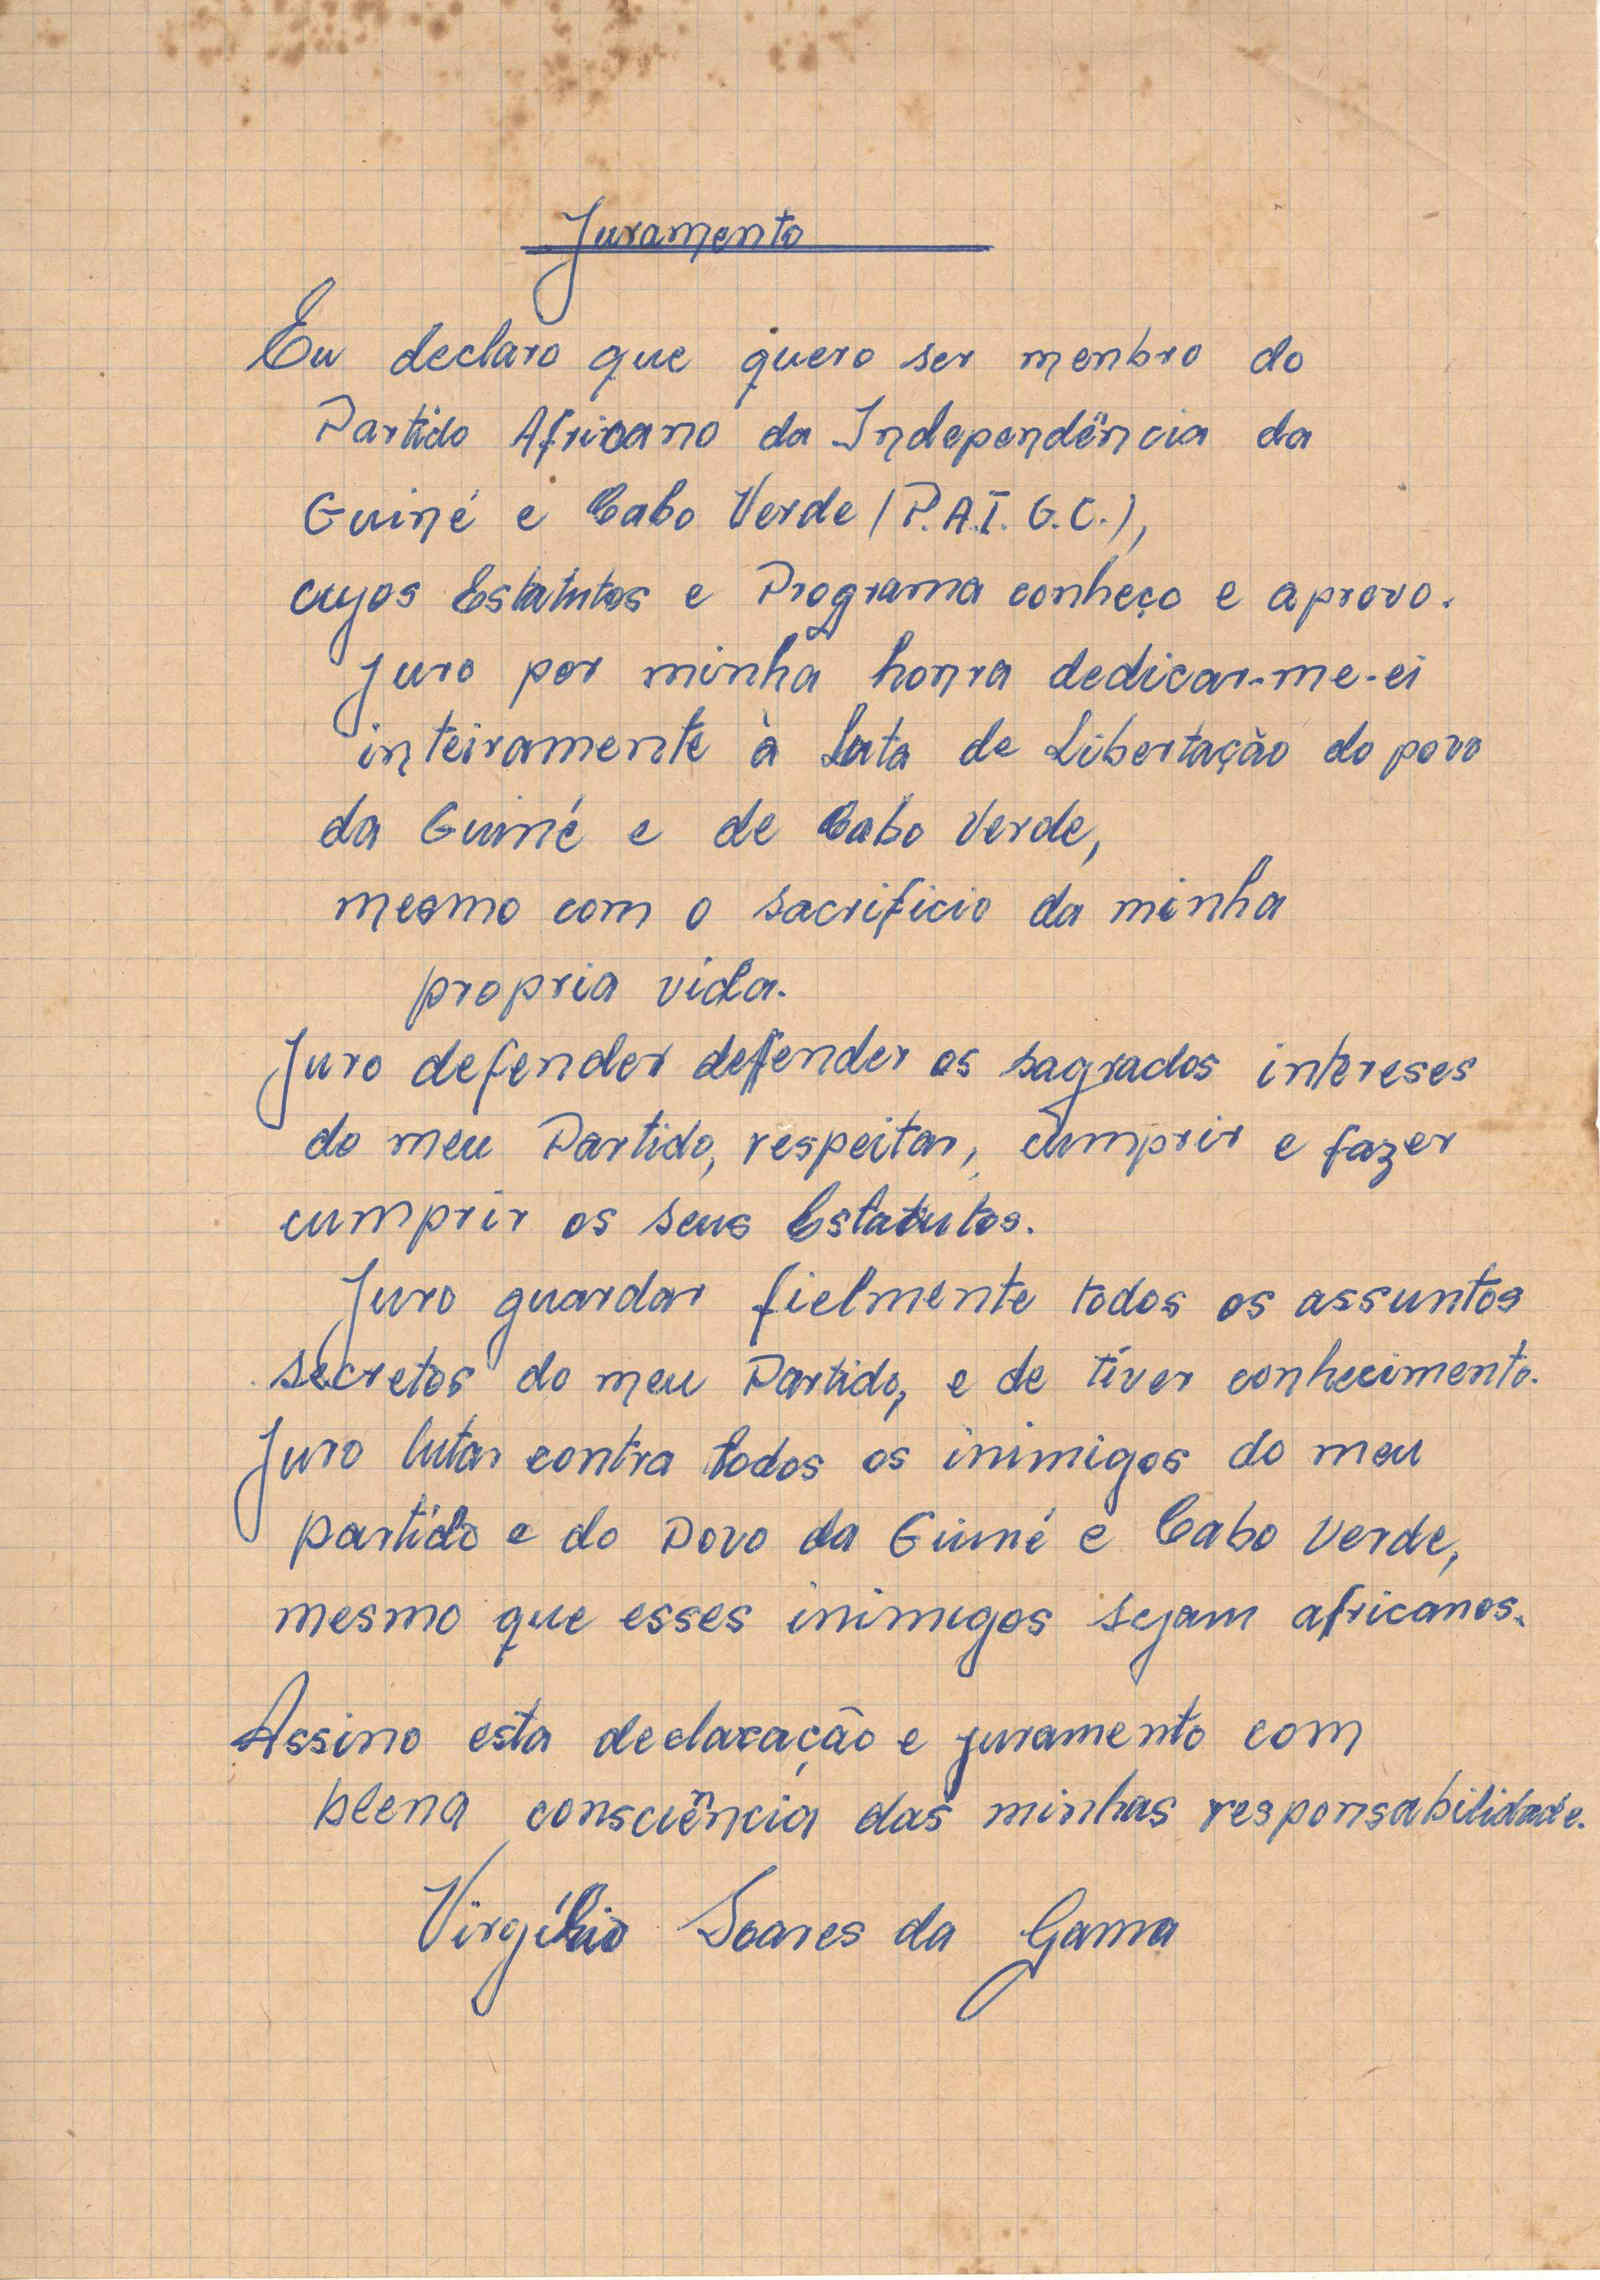 Juramento
Eu declaro que quero ser menbro do
Partido Africano da Independência da
Guiné e Cabo Verde (P.A.I.G.C.),
cujos Estatutos e Programa conheço e aprovo.
Juro por minha honra dedicar-me-ei
inteiramente à Luta de Libertação do povo
da Guiné e de Cabo Verde,
mesmo com o sacrificio da minha
propria vida.
Juro defender defender os sagrados intereses
do meu Partido, respeitar, cumprir e fazer
cumprir os seus Estatutos.
Juro guardar fielmente todos os assuntos
secretos do meu Partido, e de tiver conhecimento.
Juro lutar contra todos os inimigos do meu
partido e do Povo da Guiné e Cabo Verde,
mesmo que esses inimigos sejam africanos.
Assino esta declaração e juramento com
plena consciência das minhas responsabilidade.
Virgílio Soares da Gama